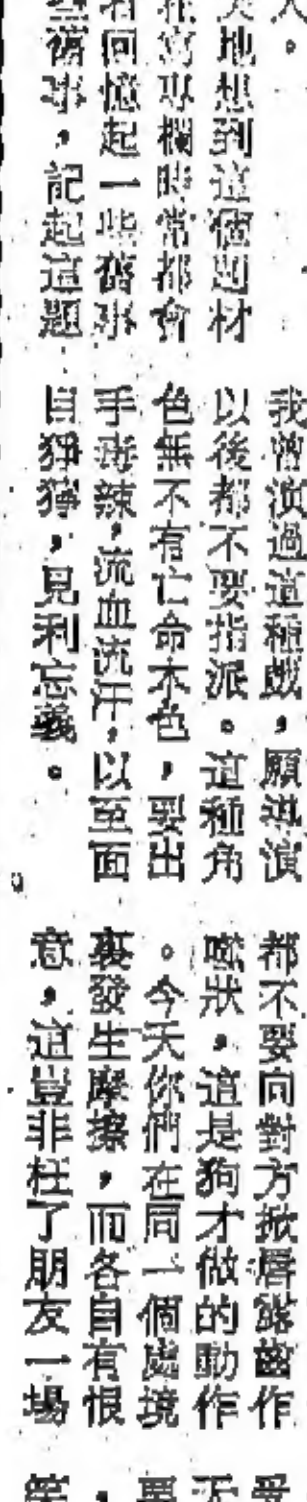 人。
地想到這個題材
寫專欄時常都會
回憶起一些舊事
舊事，記起這題
我曾演過這種戲，願導演
以後都不要指派。這種角
色無不有亡命本色，要出
手毒辣，流血流汗，以至面
目猙獰，見利忘義。
都不要向對方掀唇露齒作
噬狀，這是狗才做的動作
。今天你們在同一個處境
裏發生摩擦，而各自有恨
意，這豈非枉了朋友一場